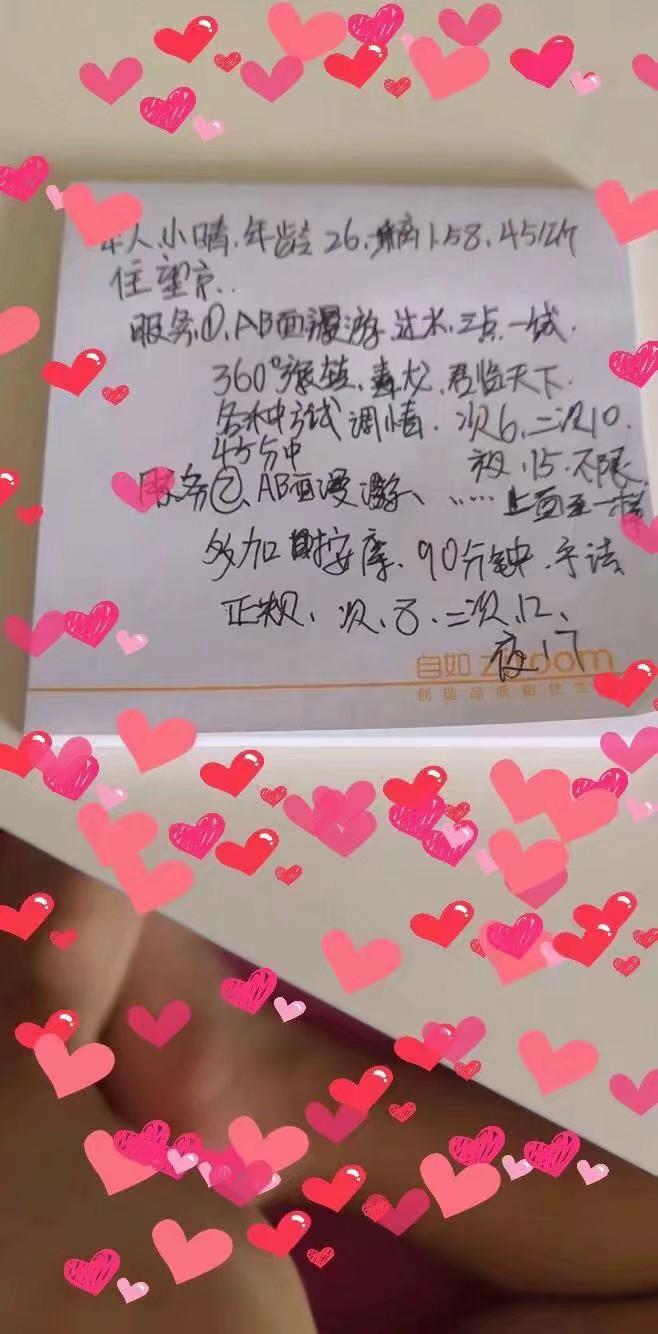 本人.小晴.年龄26.摘1.58.45公斤
住望京..
服务①.AB面漫游.过水.三点一线.
360°.毒龙.君临天下.
各种方式调情.次6.二次10.
45分中
夜.15.不限
服务②、AB面漫游、……上面一样
多加按摩.90分钟.手法
正规、次、8、二次、12、
夜、17
自如 ziroom
创造品质租住生